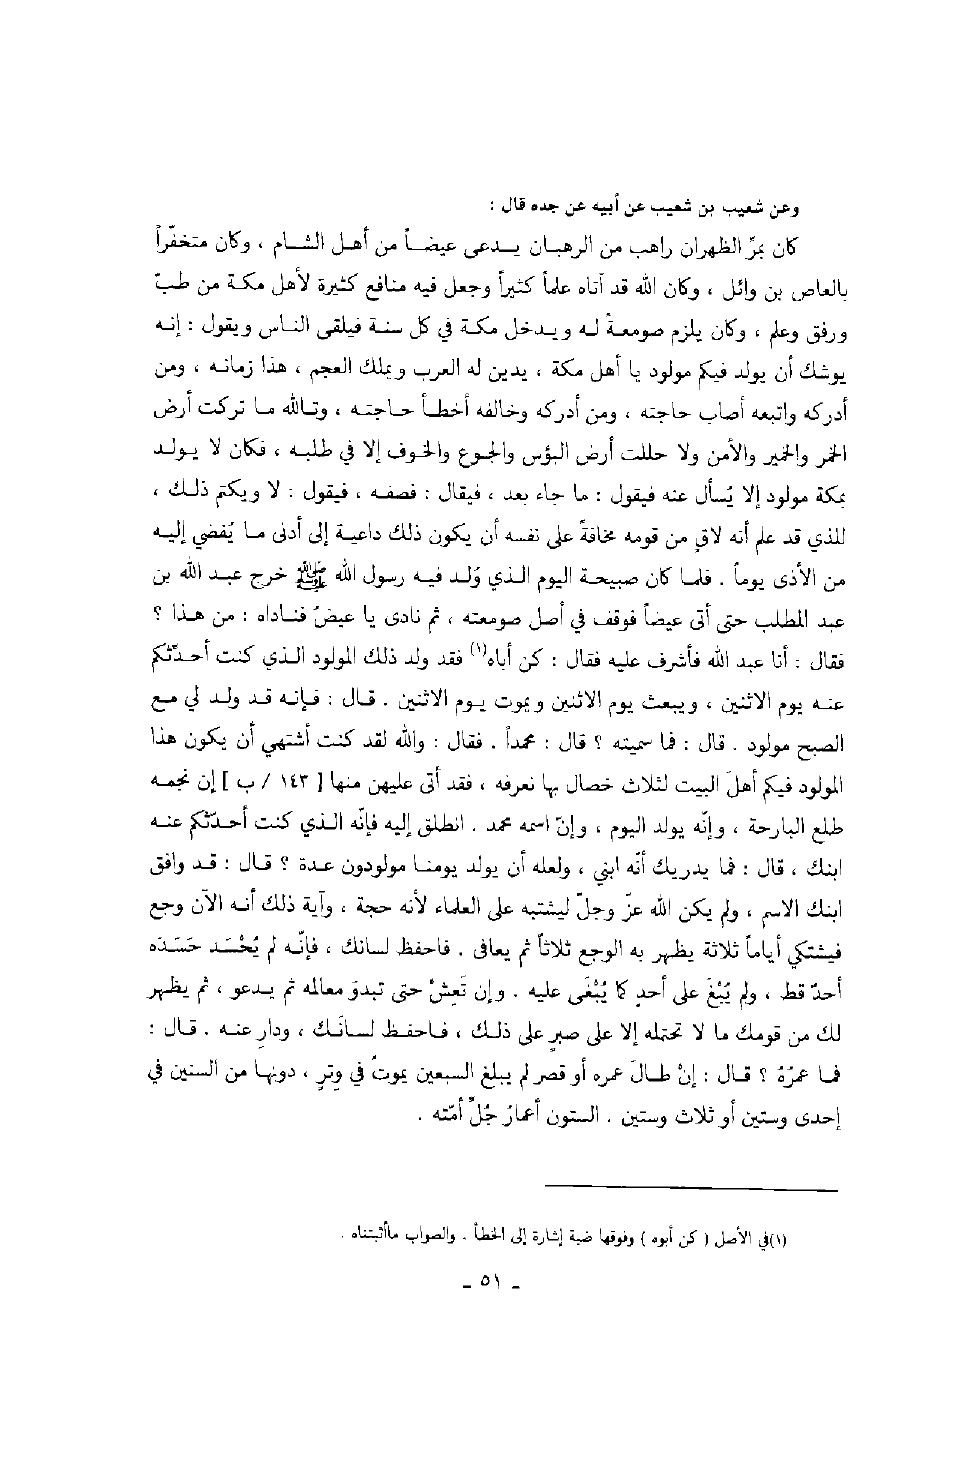 وعن شعيب بن شعيب عن أبيه عن جده قال :
كان بمرّ الظهران راهب من الرهبان يدعى عيضاً من أهل الشام ، وكان متخفّراً
بالعاص بن وائل ، وكان الله قد أتاه علماً كثيراً وجعل فيه منافع كثيرة لأهل مكة من طبّ
ورفق وعلم ، وكان يلزم صومعةً له ويدخل مكة في كل سنة فيلقى الناس ويقول : إنه
يوشك أن يولد فيكم مولود يا أهل مكة ، يدين له العرب ويملك العجم ، هذا زمانه ، ومن
أدركه واتبعه أصاب حاجته ، ومن أدركه وخالفه أخطأ حاجته ، وتالله ما تركت أرض
الخمر والخمير والأمن ولا حللت أرض البؤس والجوع والخوف إلا في طلبه ، فكان لا يولد
بمكة مولود إلا يُسأل عنه فيقول : ما جاء بعد ، فيقال : فصفه ، فيقول : لا ويكتم ذلك ،
للذي قد علم أنه لاقٍ من قومه مخافةً على نفسه أن يكون ذلك داعية إلى أدنى ما يُفضي إليه
من الأذى يوماً . فلما كان صبيحة اليوم الذي وُلد فيه رسول الله ﷺ خرج عبد الله بن
عبد المطلب حتى أتى عيضاً فوقف في أصل صومعته ، ثم نادى يا عيضُ فناداه : من هذا ؟
فقال : أنا عبد الله فأشرف عليه فقال : كن أباه(١) فقد ولد ذلك المولود الذي كنت أحدّثكم
عنه يوم الاثنين ، ويبعث يوم الاثنين ويموت يوم الاثنين . قال : فإنه قد ولد لي مع
الصبح مولود . قال : فما سميته ؟ قال : محمداً . فقال : والله لقد كنت أشتهي أن يكون هذا
المولود فيكم أهلَ البيت لثلاث خصال بها نعرفه ، فقد أتى عليهن منها [ ١٤٣ / ب ] إن نجمه
طلع البارحة ، وإنّه يولد اليوم ، وإنّ اسمه محمد . انطلق إليه فإنّه الذي كنت أحدّثكم عنه
ابنك ، قال : فما يدريك أنّه ابني ، ولعله أن يولد يومنا مولودون عدة ؟ قال : قد وافق
ابنك الاسم ، ولم يكن الله عزّ وجلّ ليشتبه على العلماء لأنه حجة ، وآية ذلك أنه الآن وجع
فيشتكي أياماً ثلاثة يظهر به الوجع ثلاثاً ثم يعافى . فاحفظ لسانك ، فإنّه لم يُحْسَد حَسَدَه
أحدٌ قط ، ولم يُبْغَ على أحدٍ كما يُبْغَى عليه . وإن تَعِشْ حتى تبدوَ معالمه ثم يدعو ، ثم يظهر
لك من قومك ما لا تحتمله إلا على صبرٍ على ذلك ، فاحفظ لسانَك ، ودارِ عنه . قال :
فما عمرُهُ ؟ قال : إنْ طالَ عمره أو قصر لم يبلغ السبعين يموتُ في وِترٍ ، دونها من السنين في
إحدى وستين أو ثلاث وستين . الستون أعمارُ جُلِّ أمّته .
(١)في الأصل ( كن أبوه ) وفوقها ضبة إشارة إلى الخطأ . والصواب ماأثبتناه .
- ٥١ -